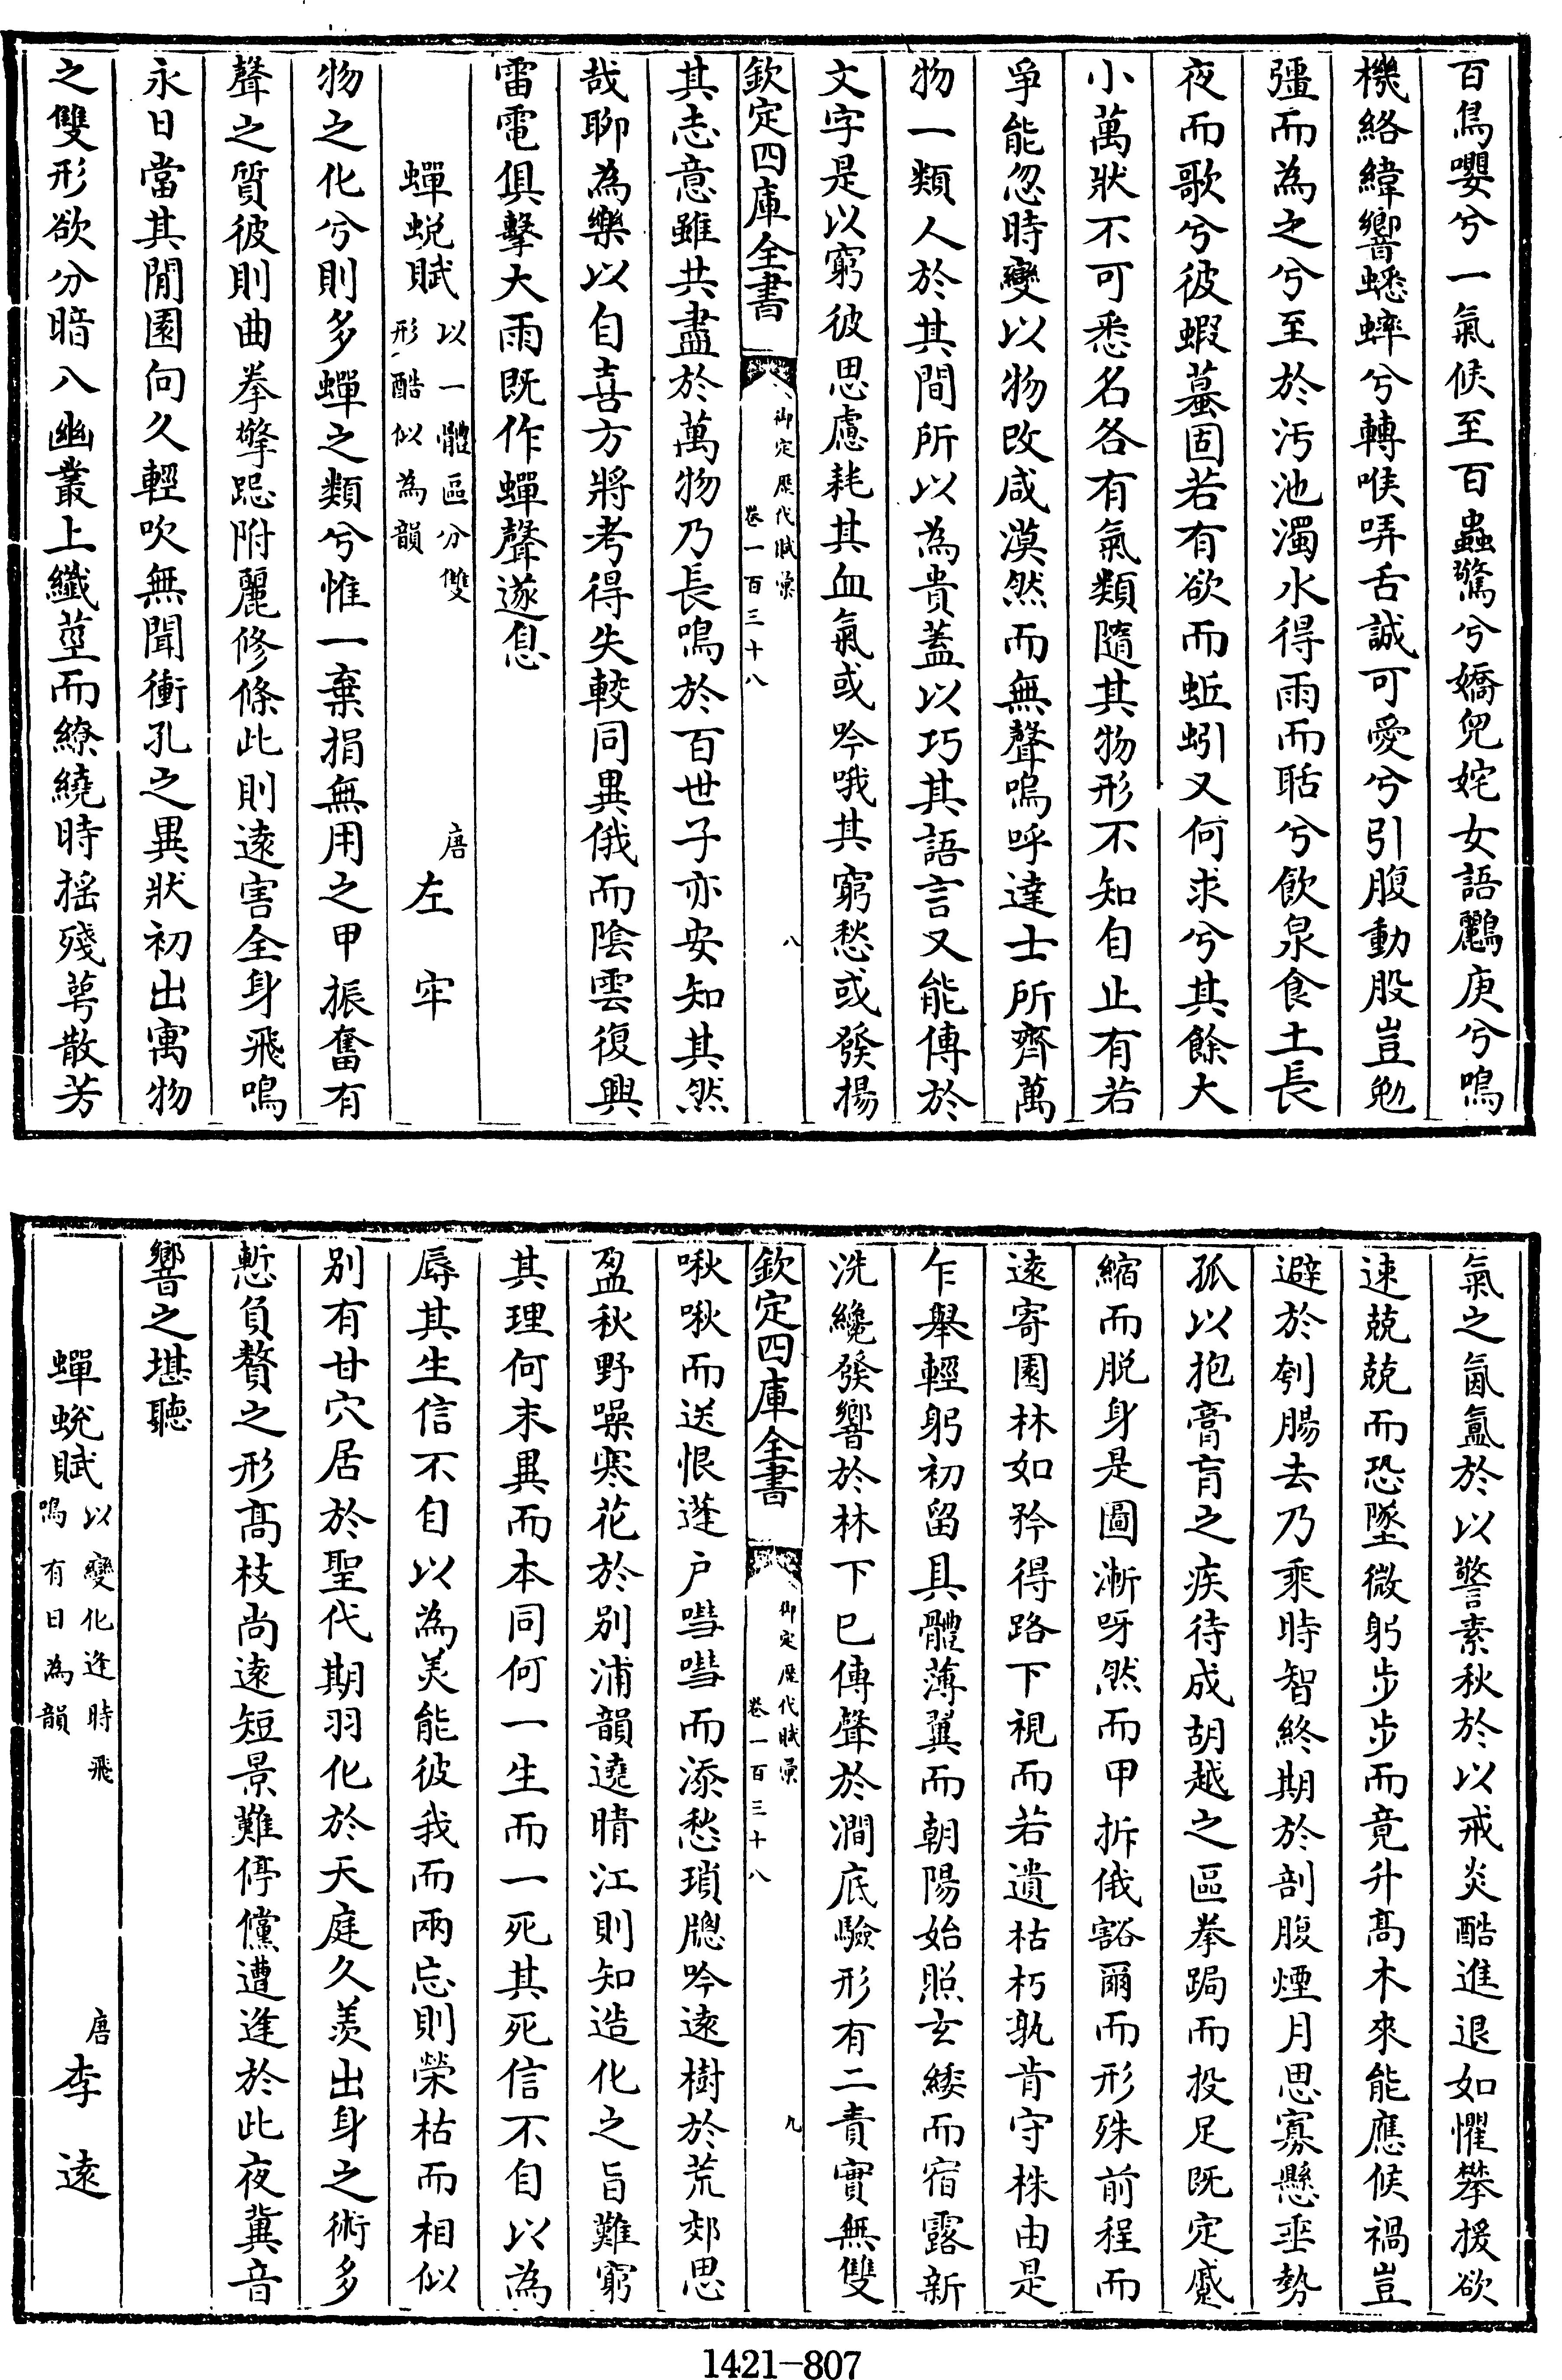 百鳥嚶兮一氣候至百蟲驚兮嬌兒姹女語鸝庚兮鳴
機絡緯響蟋蟀兮轉喉弄舌誠可愛兮引腹動股豈勉
彊而為之兮至於汚池濁水得雨而聒兮飲泉食土長
夜而歌兮彼蝦蟇固若有欲而蚯蚓又何求兮其餘大
小萬狀不可悉名各有氣類隨其物形不知自止有若
爭能忽時變以物改咸漠然而無聲嗚呼達士所齊萬
物一類人於其間所以為貴蓋以巧其語言又能傳於
文字是以窮彼思慮耗其血氣或吟哦其窮愁或發揚
欽定四庫全書 御定歷代賦彙 卷一百三十八 八
其志意雖共盡於萬物乃長鳴於百世子亦安知其然
哉聊為樂以自喜方將考得失較同異俄而陰雲復興
雷電俱擊大雨既作蟬聲遂息
蟬蛻賦 以一體區分雙形酷似為韻 唐左牢
物之化兮則多蟬之類兮惟一棄捐無用之甲振奮有
聲之質彼則曲拳擎跽附麗修條此則遠害全身飛鳴
永日當其閒園向久輕吹無聞衝孔之異狀初出寓物
之雙形欲分暗八幽叢上纖莖而繚繞時搖殘萼散芳
氣之氤氳於以警素秋於以戒炎酷進退如懼攀援欲
速兢兢而恐墜微躬步步而竟升高木來能應候禍豈
避於刳腸去乃乘時智終期於剖腹煙月思寡懸垂勢
孤以抱膏肓之疾待成胡越之區拳跼而投足既定蹙
縮而脱身是圖漸呀然而甲拆俄豁爾而形殊前程而
遠寄園林如矜得路下視而若遺枯朽孰肯守株由是
乍舉輕躬初留具體薄翼而朝陽始照玄緌而宿露新
洗纔發響於林下已傳聲於澗底驗形有二責實無雙
欽定四庫全書 御定歷代賦彙 卷一百三十八 九
啾啾而送恨蓬戶嘒嘒而添愁瑣牕吟遠樹於荒郊思
盈秋野噪寒花於別浦韻遶晴江則知造化之旨難窮
其理何末異而本同何一生而一死其死信不自以為
辱其生信不自以為美能彼我而兩忘則榮枯而相似
別有甘穴居於聖代期羽化於天庭久羨出身之術多
慙負贅之形高枝尚遠短景難停儻遭逢於此夜冀音
響之堪聽
蟬蛻賦 以變化逢時飛鳴有日為韻 唐李遠
1421-807